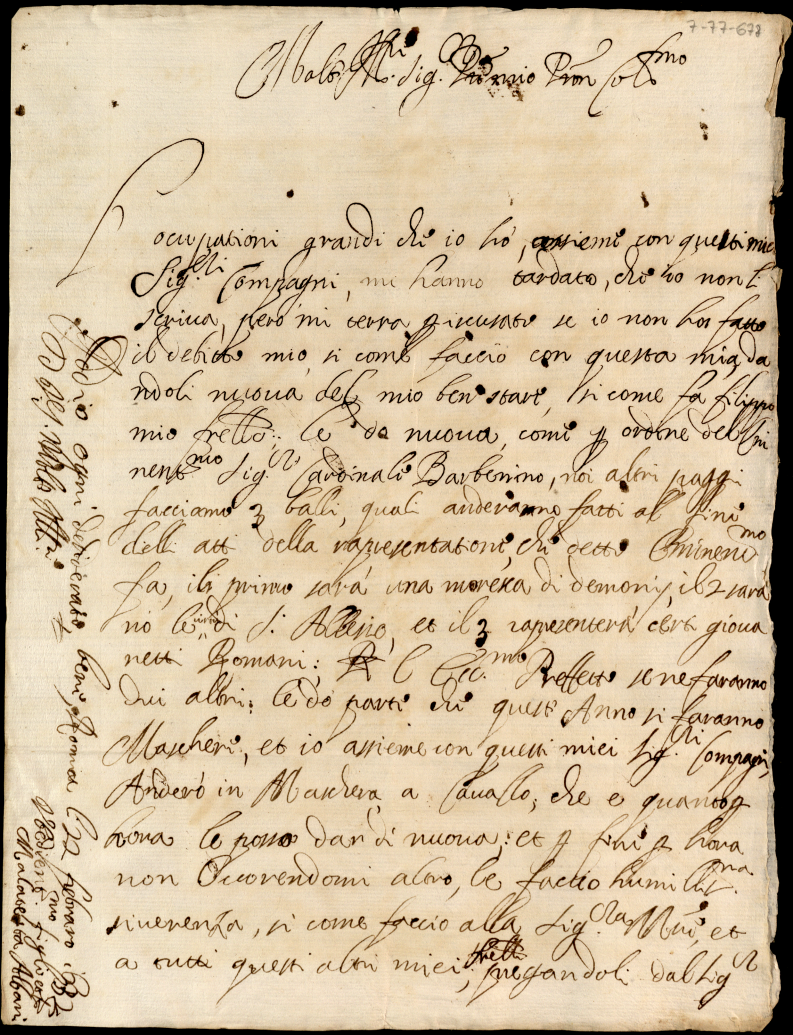 7-77-678
Molto Ill.re Sig. P̃ñe mio P̃rõn Col.mo
L ocupationi grandi che io hò, assieme con questi miei
Sig.ri Compagni, me hanno tardato, che io non l
scriva, però mi terra p iscusato se io non hò fatto
il debitto mio, si come faccio con questa mia, da
ndoli nuova del mio ben stare, si come fa filippo
mio frello; le do nuova, come p ordine dell Emi
nent.mo Sig.r Cardinale Barberino, noi altri paggi
facciamo 3 balli, quali anderanno fatti al fine
delli atti della rapresentatione, che detto Eminen.mo
fa, il primo sarà una morescа di demonij, il 2 sara
no le virtù di S. Alessio, et il 3 rapresenterà certi giova
netti Romani; l Ecc.mo Preffetto se ne faranno
dui altri; le do parte che quest Anno si faranno
Maschere, et io assieme con questi miei Sig.ri Compagni,
Anderò in Maschera a Cavallo, che e quanto p
hora le posso dar di nuova; et p fine p hora
non Occorendomi altro, le faccio humiliss.ma
riverenza, si come faccio alla Sig.ra M̃re, et
a tutti questi altri miei frelli, pregandoli dal Sig.r
Iddio ogni desiderato bene, Roma li 22 febraro 1632
D V.S. Molto Ill.re
Obedient.mo figliolo
Malatesta Albani